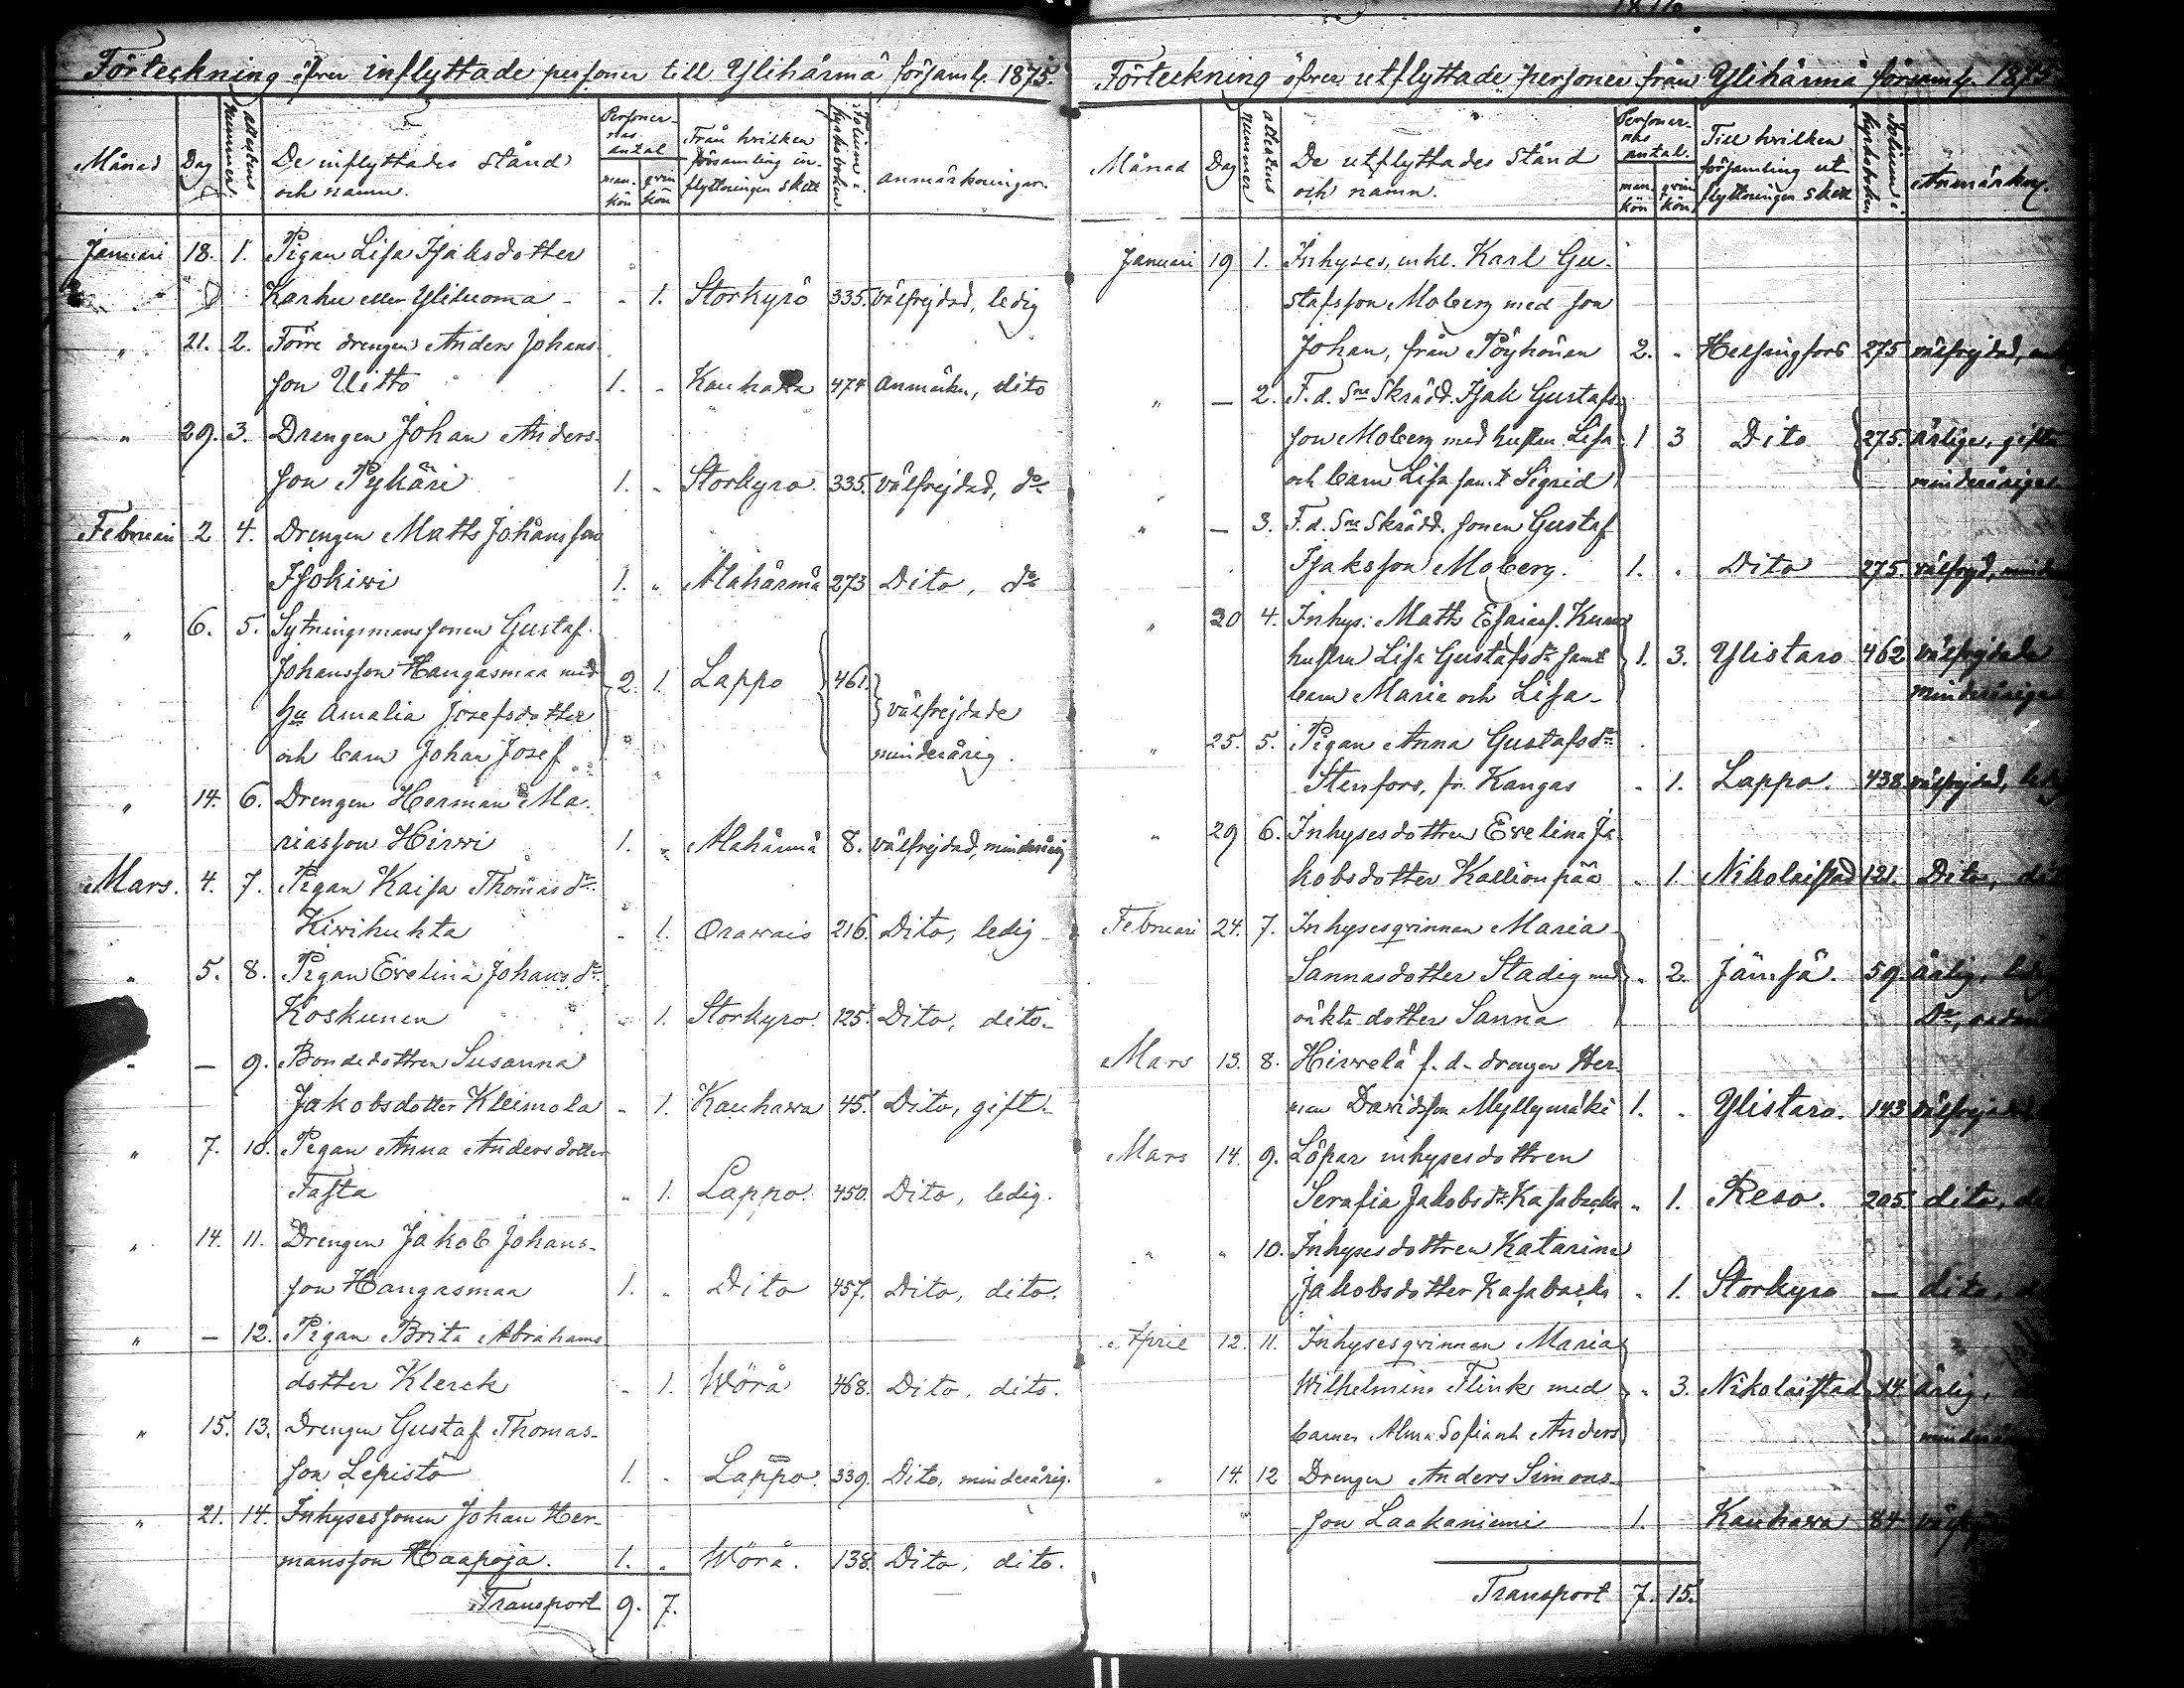 Förteckning öfver inflyttade personer till Ylihärmä församl. 1875.
Månad Dag attestens nummer De inflyttades stånd och namn. Personernas antal mankön qvinkön Från hvilken församling inflyttningen skett Folium i kyrkoboken anmärkningar.
Januari 18. 1. Pigan Lisa Isaksdotter
Karhu eller Yliluoma - " 1. Storkyrö 335. välfrejdad, ledig
" 21. 2. Förre drengen Anders Johans-
son Uitto 1. " Kauhava 474 anmärkn, dito
" 29. 3. Drengen Johan Anders-
son Pyhäri 1. " Storkyro. 335. välfrejdad, do
Februari 2 4. Drengen Matts Johansson
Isokiwi 1. " Alahärmä 273 Dito, do
" 6. 5. Sytningsmanssonen Gustaf
Johansson Hangasmaa med 2. 1. Lappo 461.
hu Amalia Josefsdotter välfrejdade
och barn Johan Josef minderårig.
" 14. 6. Drengen Herman Ma-
riasson Hirvi 1. " Alahärmä 8. välfrejdad, minderårig
Mars. 4. 7. Pigan Kaisa Thomasdr
Kivihuhta " 1. Oravais 216. Dito, ledig
" 5. 8. Pigan Evelina Johansdr
Koskunen " 1. Storkyro. 125. Dito, dito.
" — 9. Bondedottren Susanna
Jakobsdotter Kleimola " 1. Kauhava 45. Dito, gift.
" 7. 10. Pigan Anna Andersdotter
Fasta " 1. Lappo. 450. Dito, ledig.
" 14. 11. Drengen Jakob Johans-
son Hangasmaa 1. " Dito 457. Dito, dito.
" — 12. Pigan Brita Abrahams
dotter Klerck " 1. Wörå 468. Dito, dito.
" 15. 13. Drengen Gustaf Thomas-
son Lepistö 1. " Lappo. 339. Dito, minderårig.
" 21. 14. Inhysessonen Johan Her-
mansson Haapoja. 1. " Wörå. 138. Dito, dito.
Transport 9. 7.
Förteckning öfver utflyttade personer från Ylihärmä församl. 1875
Månad Dag attestens nummer De utflyttades stånd och namn. Personernas antal. mankön qvinkön Till hvilken församling utflyttningen skett Folium i kyrkoboken Anmärkn.
Januari 19 1. Inhyses, enkl. Karl Gu-
stafsson Moberg med son
Johan, från Pöyhönen 2. " Helsingfors 275 välfrejdad,
" — 2. F. d. Sne Skrädd. Isak Gustafs-
son Moberg med hustru Lisa 1 3 Dito 275. ärlige, gifta
och barn Lisa samt Sigrid minderåriga
" — 3. F. d. Sne Skrädd. sonen Gustaf
Isaksson Moberg. 1. " Dito 275. välfrejd,
" 20 4. Inhys: Matts Esaiass.
hustru Lisa Gustafsdr samt 1. 3. Ylistaro 462 välfrejdade
barn Maria och Lisa minderåriga
" 25. 5. Pigan Anna Gustafsdr
Stenfors, fr. Kangas " 1. Lappo. 438. välfrejdad,
" 29 6. Inhysesdottren Evelina Ja-
kobsdotter Kallionpää " 1 Nikolaistad 121. Dito,
Februari 24. 7. Inhysesqvinnan Maria
Sannasdotter Stadig med " 2. Jämsä. 59. ärlig,
oäkta dotter Sanna Do,
Mars 13. 8. Hirvelä f. d. drengen Her-
man Davidsson Myllymäki 1. " Ylistaro. 143 välfrejdad
Mars 14. 9. Löpar inhysesdottren
Serafia Jakobsdr Kasabacka " 1. Reso. 205. dito,
" " 10. Inhysesdottren Katarina
Jakobsdotter Kasabacka " 1. Storkyro — dito,
April 12. 11. Inhysesqvinnan Maria
Wilhelmina Flink med " 3. Nikolaistad 14 ärlig,
barnen Alma Sofia och Anders
" 14. 12 Drengen Anders Simons-
son Laakaniemi 1. Kauhava 84
Transport 7. 15.